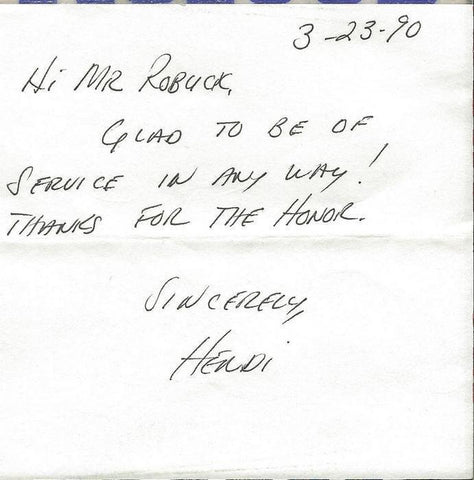 3-23-90
Hi Mr Robuck,
Glad to be of
service in any way!
Thanks for the Honor.
Sincerely,
Hendi